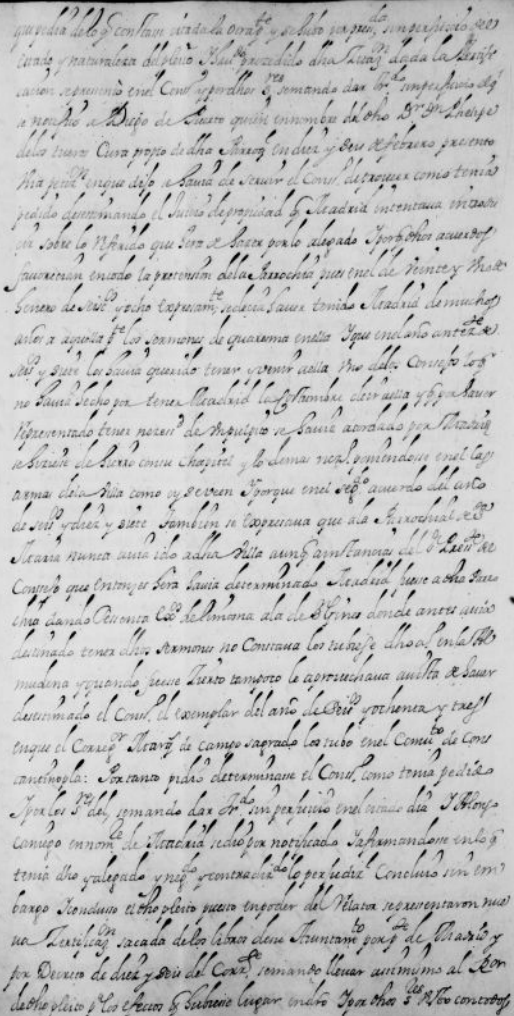 que pedia de lo q constase citada la otra p.te y se hubo por pres.da sin perjuicio del
estado y naturaleza del pleito
sacion se presento en el Cons.o y por dhos s.res se mando dar tr.do sin perjuicio
se notifico a Diego de quien en nombre del dho D.r D.n Phelipe
de los Cura propio de dha Parroq.l en diez y seis de febrero presento
vna petiz.on en que dijo se havia de servir el Cons.o de proveer como tenia
pedido desestimando el Juicio de propiedad q Madrid intentava introdu
cir sobre lo referido que hera de hazer por lo alegado y porq dhos acuerdos
favorecian en todo la pretension de la Parrochia pues en el de veinte y vno de
henero de seis.os y ocho expresam.te se decia haver tenido Madrid de muchos
años a aquella p.te los sermones de quaresma en ella y que en el año antez.te de
seis.os y siete los havia querido tener y venir a ella vno de los Consejos lo q
no havia hecho por tener Madrid la costumbre de ir a ella y q por haver
representado tener necess.d de vn pulpito se havia acordado por Madrid
se hiziese de hierro con su chapitel y lo demas nez.o poniendose en el las
armas de la Villa como oy se veen y porque en el seg.do acuerdo del año
de seis.os y diez y siete tambien se expresava que a la Parrochial de S.ta
Maria nunca avia ido a dha Villa aunq a instancias del s.r Presid.te de
Consejo que entonzes hera havia determinado Madrid fuese a dha Parro
chia dando sesenta de limosna a la de S.n Gines donde antes avia
destinado tener dhos sermones no constava los tubiesse dho a.o en la Al
mudena y quando fuese zierto tampoco le aprovechava a vista de haver
desestimado el Cons.o el exemplar del año de seis.os y ochenta y tres
en que el Correg.or Marq.s de campo sagrado los tubo en el Comb.to de Cons
tantinopla: Por tanto pidio determinase el Cons.o como tenia pedido
y por los s.res del, se mando dar tr.do sin perjuicio en el citado dia y Alfonso
Canugo en nom.e de Madrid se dio por notificado y afirmandose en lo q
tenia dho y alegado y neg.do y contradiz.do lo perjudizial Concluio sin em
bargo y conduso el dho pleito puesto en poder del Relator se presentaron nue
va Zertificaz.on sacada de los libros de su Ayuntam.to por p.te de Madrid y
por Decreto de diez y seis del Corr.te se mando llevar assimismo al Re.or
de dho pleito p.a los efectos q hubiese lugar en dro y por dhos s.res visto con todos